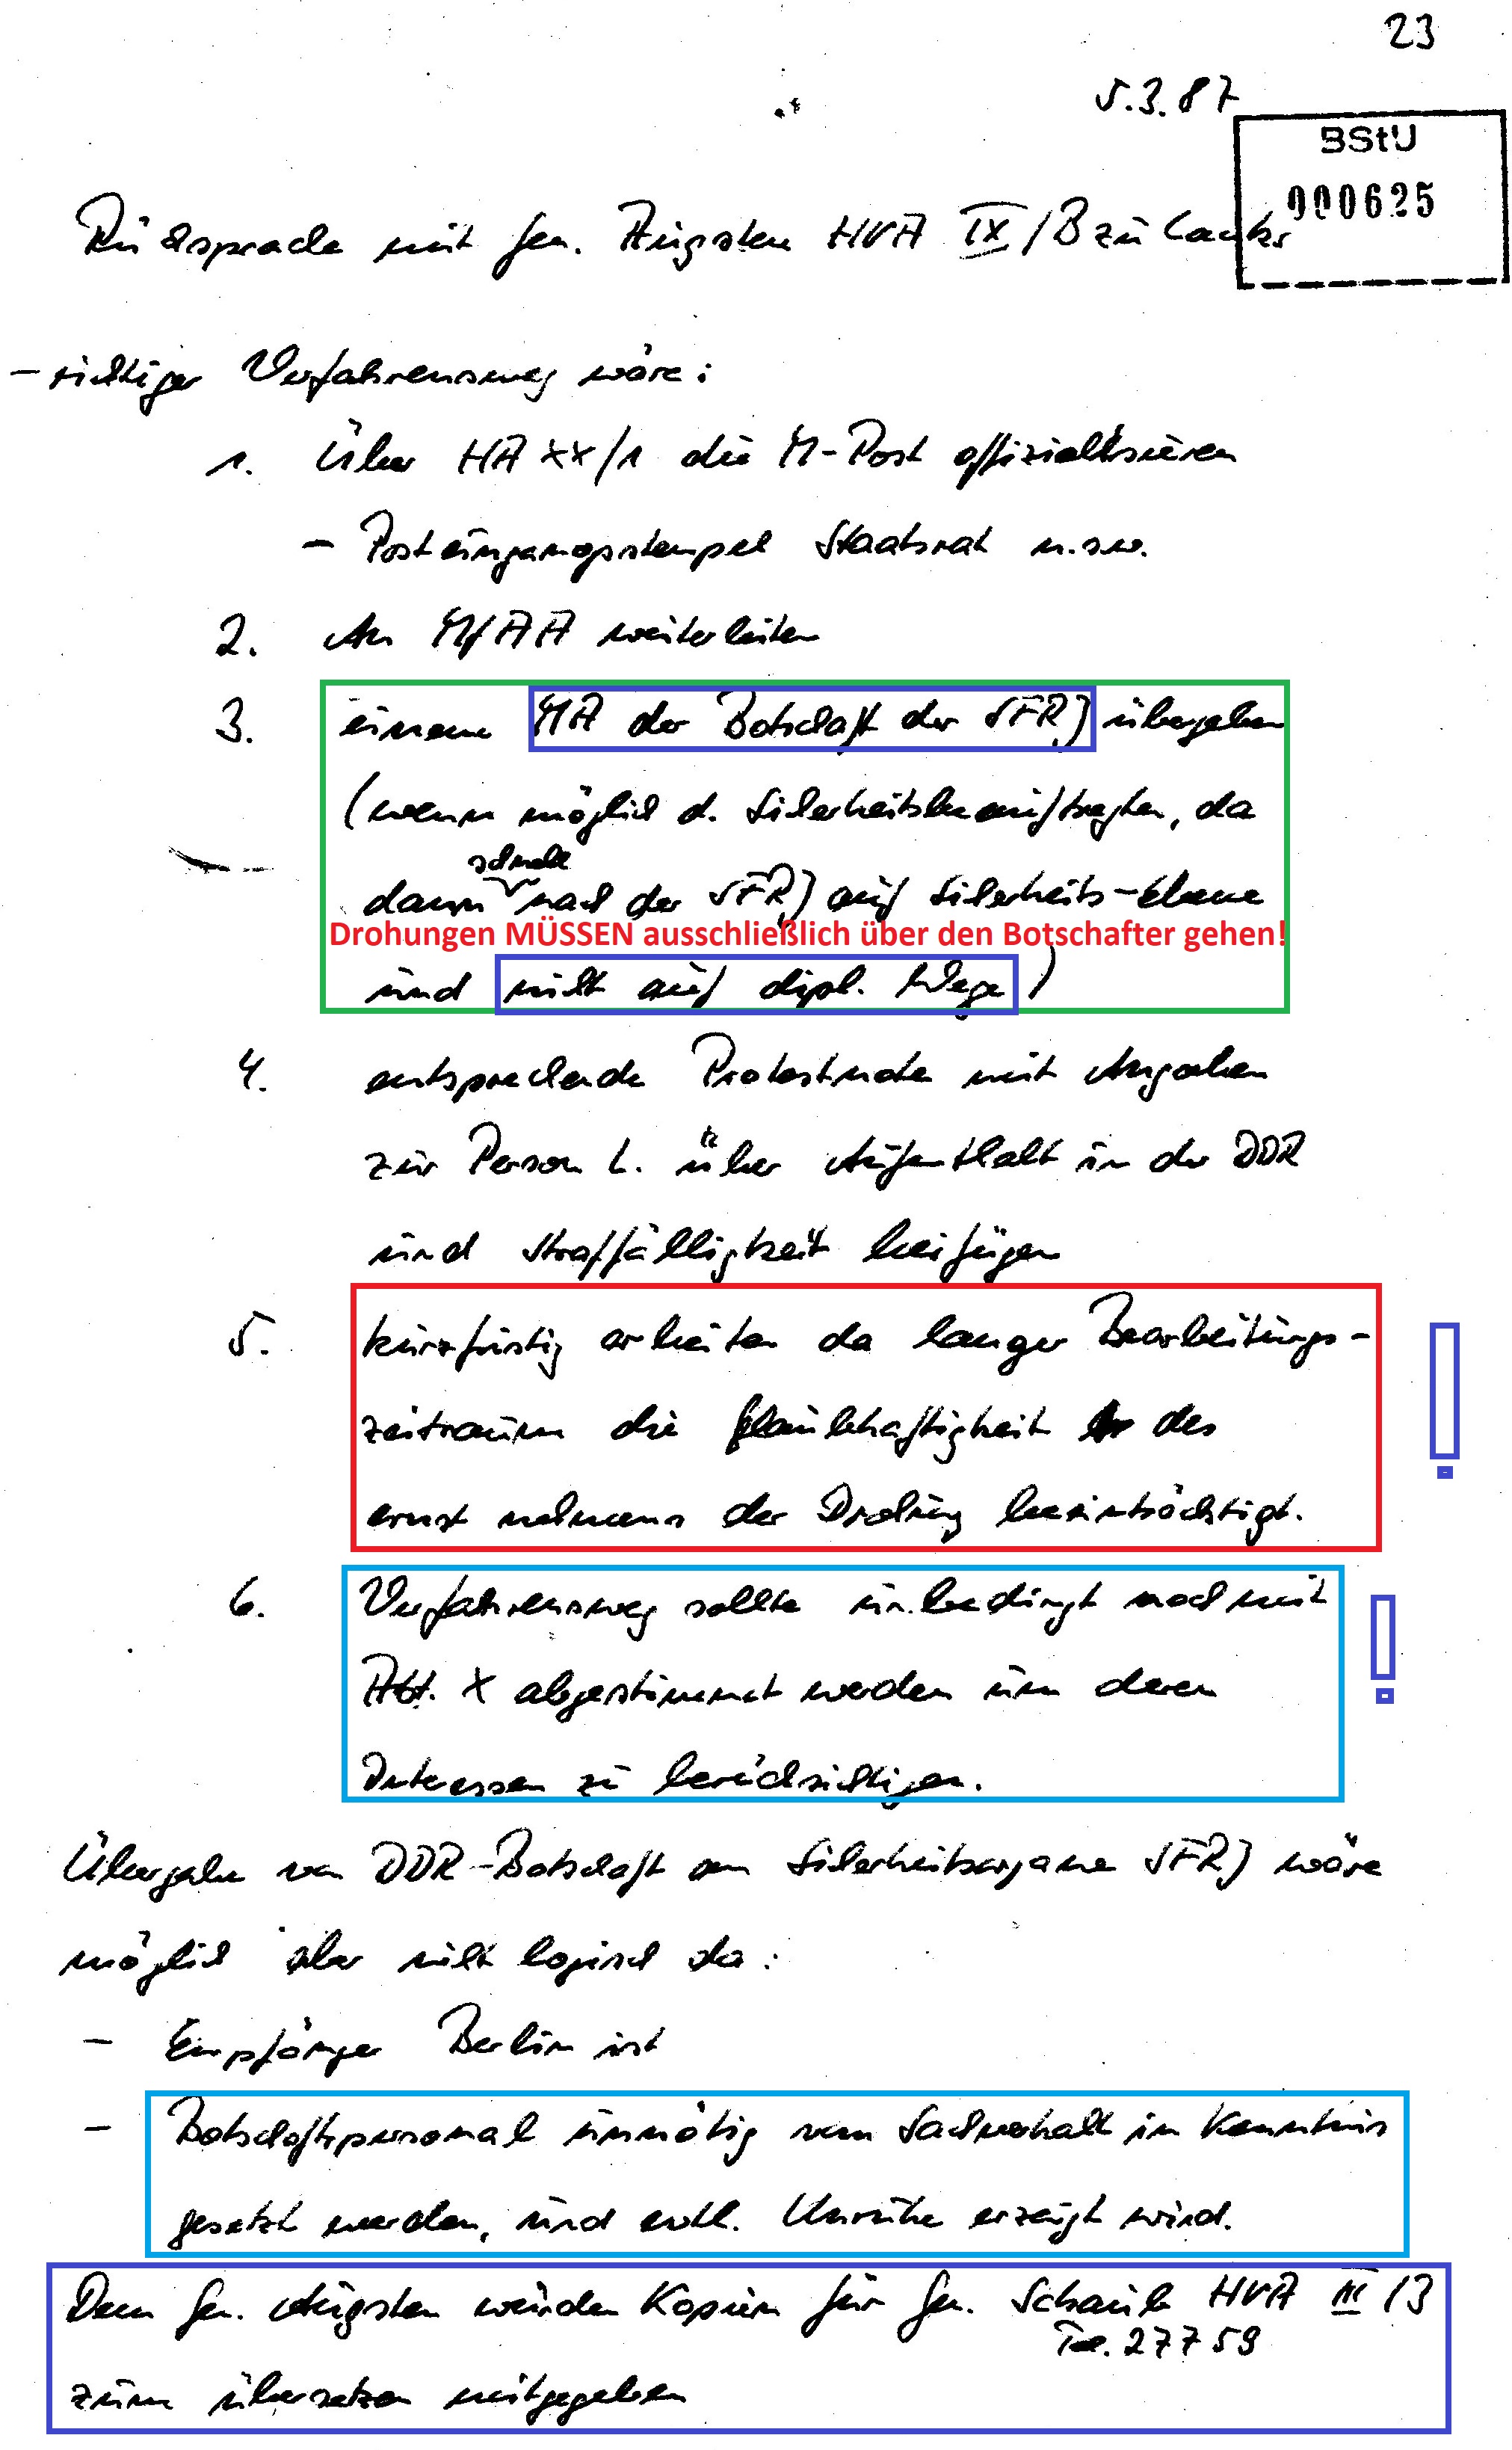 23
5.3.87
BStU
000625
Rücksprache mit Gen. Augsten HVA IX/B zu Lauks
- richtiger Verfahrensweg wäre:
1. Über HA XX/1 die M-Post offizialisieren
- Posteingangsstempel Staatsrat u.s.w.
2. An MfAA weiterleiten
3. einem MA der Botschaft der SFRJ übergeben
(wenn möglich d. Sicherheitsbeauftragten, da
schnell
dann nach der SFRJ auf Sicherheits-Ebene
Drohungen MÜSSEN ausschließlich über den Botschafter gehen!
und nicht auf dipl. Wege)
4. entsprechende Protestnote mit Angaben
zur Person L. über Aufenthalt in der DDR
und Straffälligkeit beifügen
5. kurzfristig arbeiten da langer Bearbeitungs-
zeitraum die Glaubhaftigkeit des
ernst nehmens der Drohung beeinträchtigt.
6. Verfahrensweg sollte unbedingt noch mit
Abt. X abgestimmt werden um deren
Interessen zu berücksichtigen.
Übergabe von DDR-Botschaft an Sicherheitsorgane SFRJ wäre
möglich aber nicht logisch da:
- Empfänger Berlin ist
- Botschaftspersonal unnötig vom Sachverhalt in Kenntnis
gesetzt werden, und evtl. Unruhe erzeugt wird.
Dem Gen. Augsten wurden Kopien für Gen. Schaub HVA III/B
Tel. 27759
zum übersetzen mitgegeben